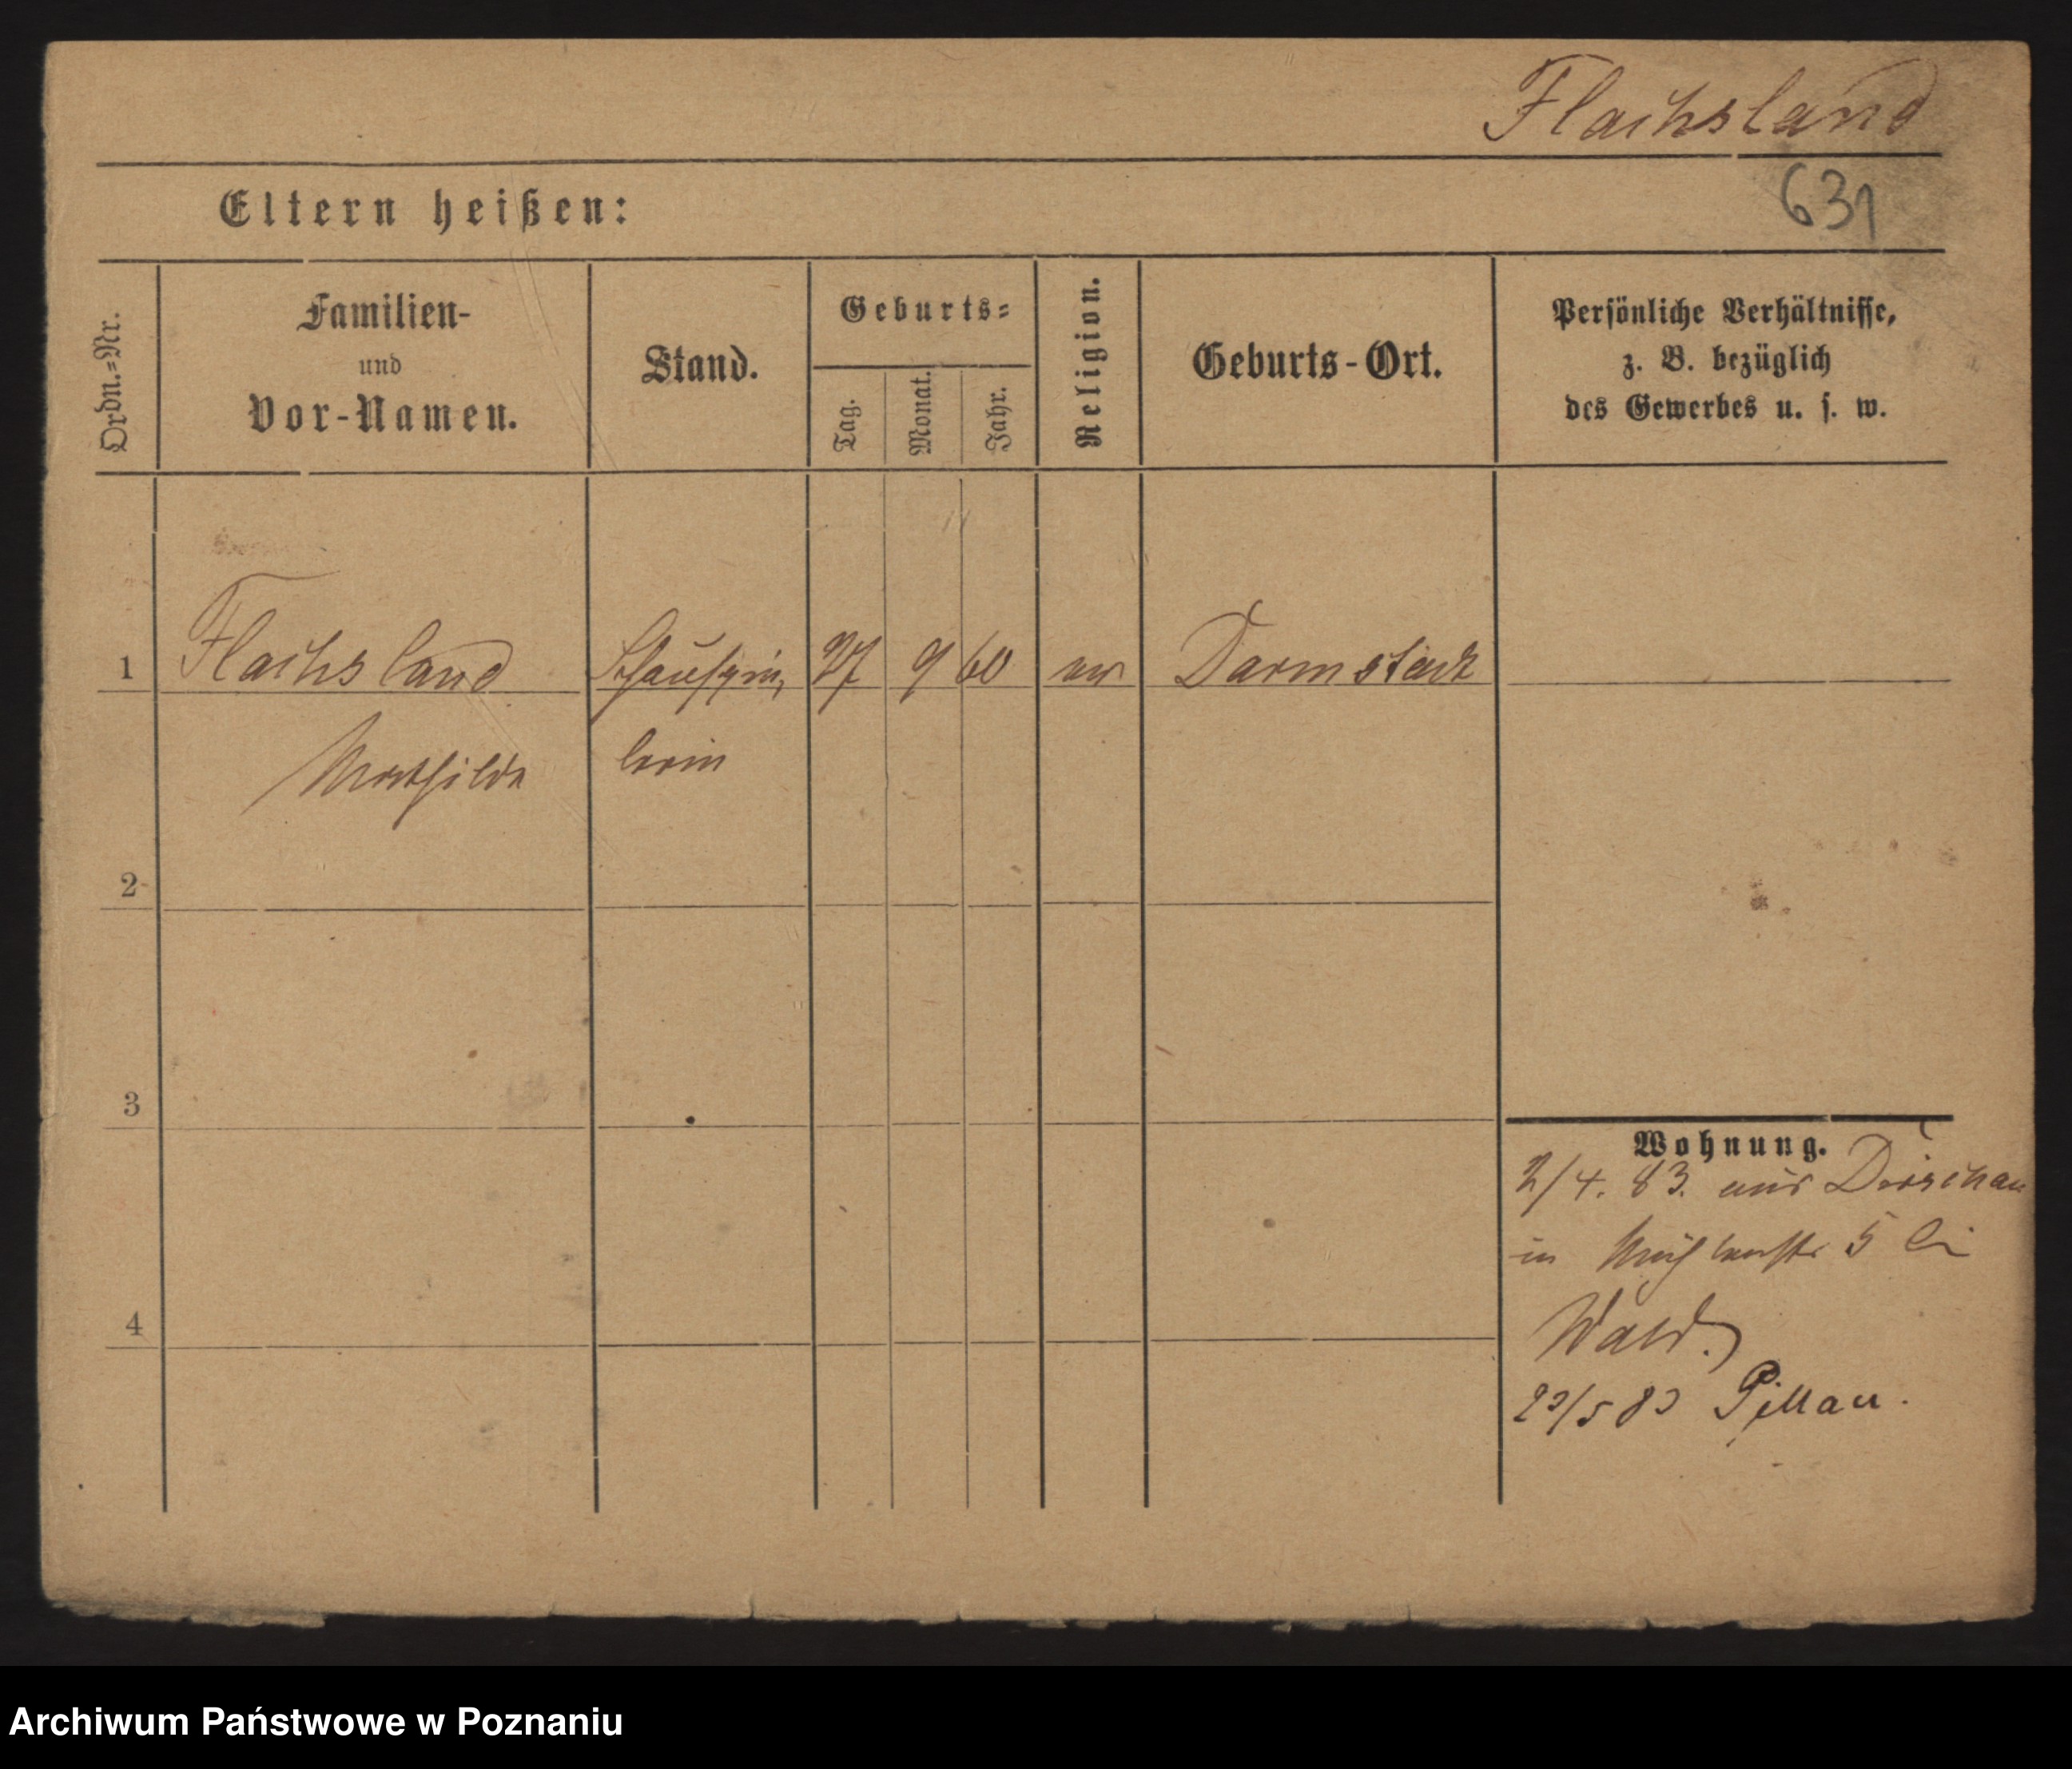 Flachsland
631
Eltern heißen:
Ordn.=Nr.
Familien-
und
Vor-Namen.
Stand.
Geburts=
Tag.
Monat.
Jahr.
Religion.
Geburts-Ort.
Persönliche Verhältnisse,
z. B. bezüglich
des Gewerbes u. s. w.
1 Flachsland Schauspie, 27 9 60 ev Darmstadt
Mathilde lerin
2
3
4
Wohnung.
2/4. 83. aus Dirschau
in Mühlenstr 5 bei
Wald.
23/5 83 Pillau.
Archiwum Państwowe w Poznaniu